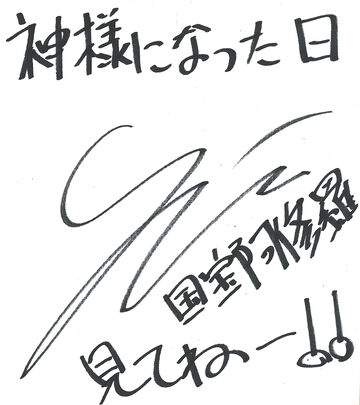 神様になった日
国宝阿修羅
見てねー!!